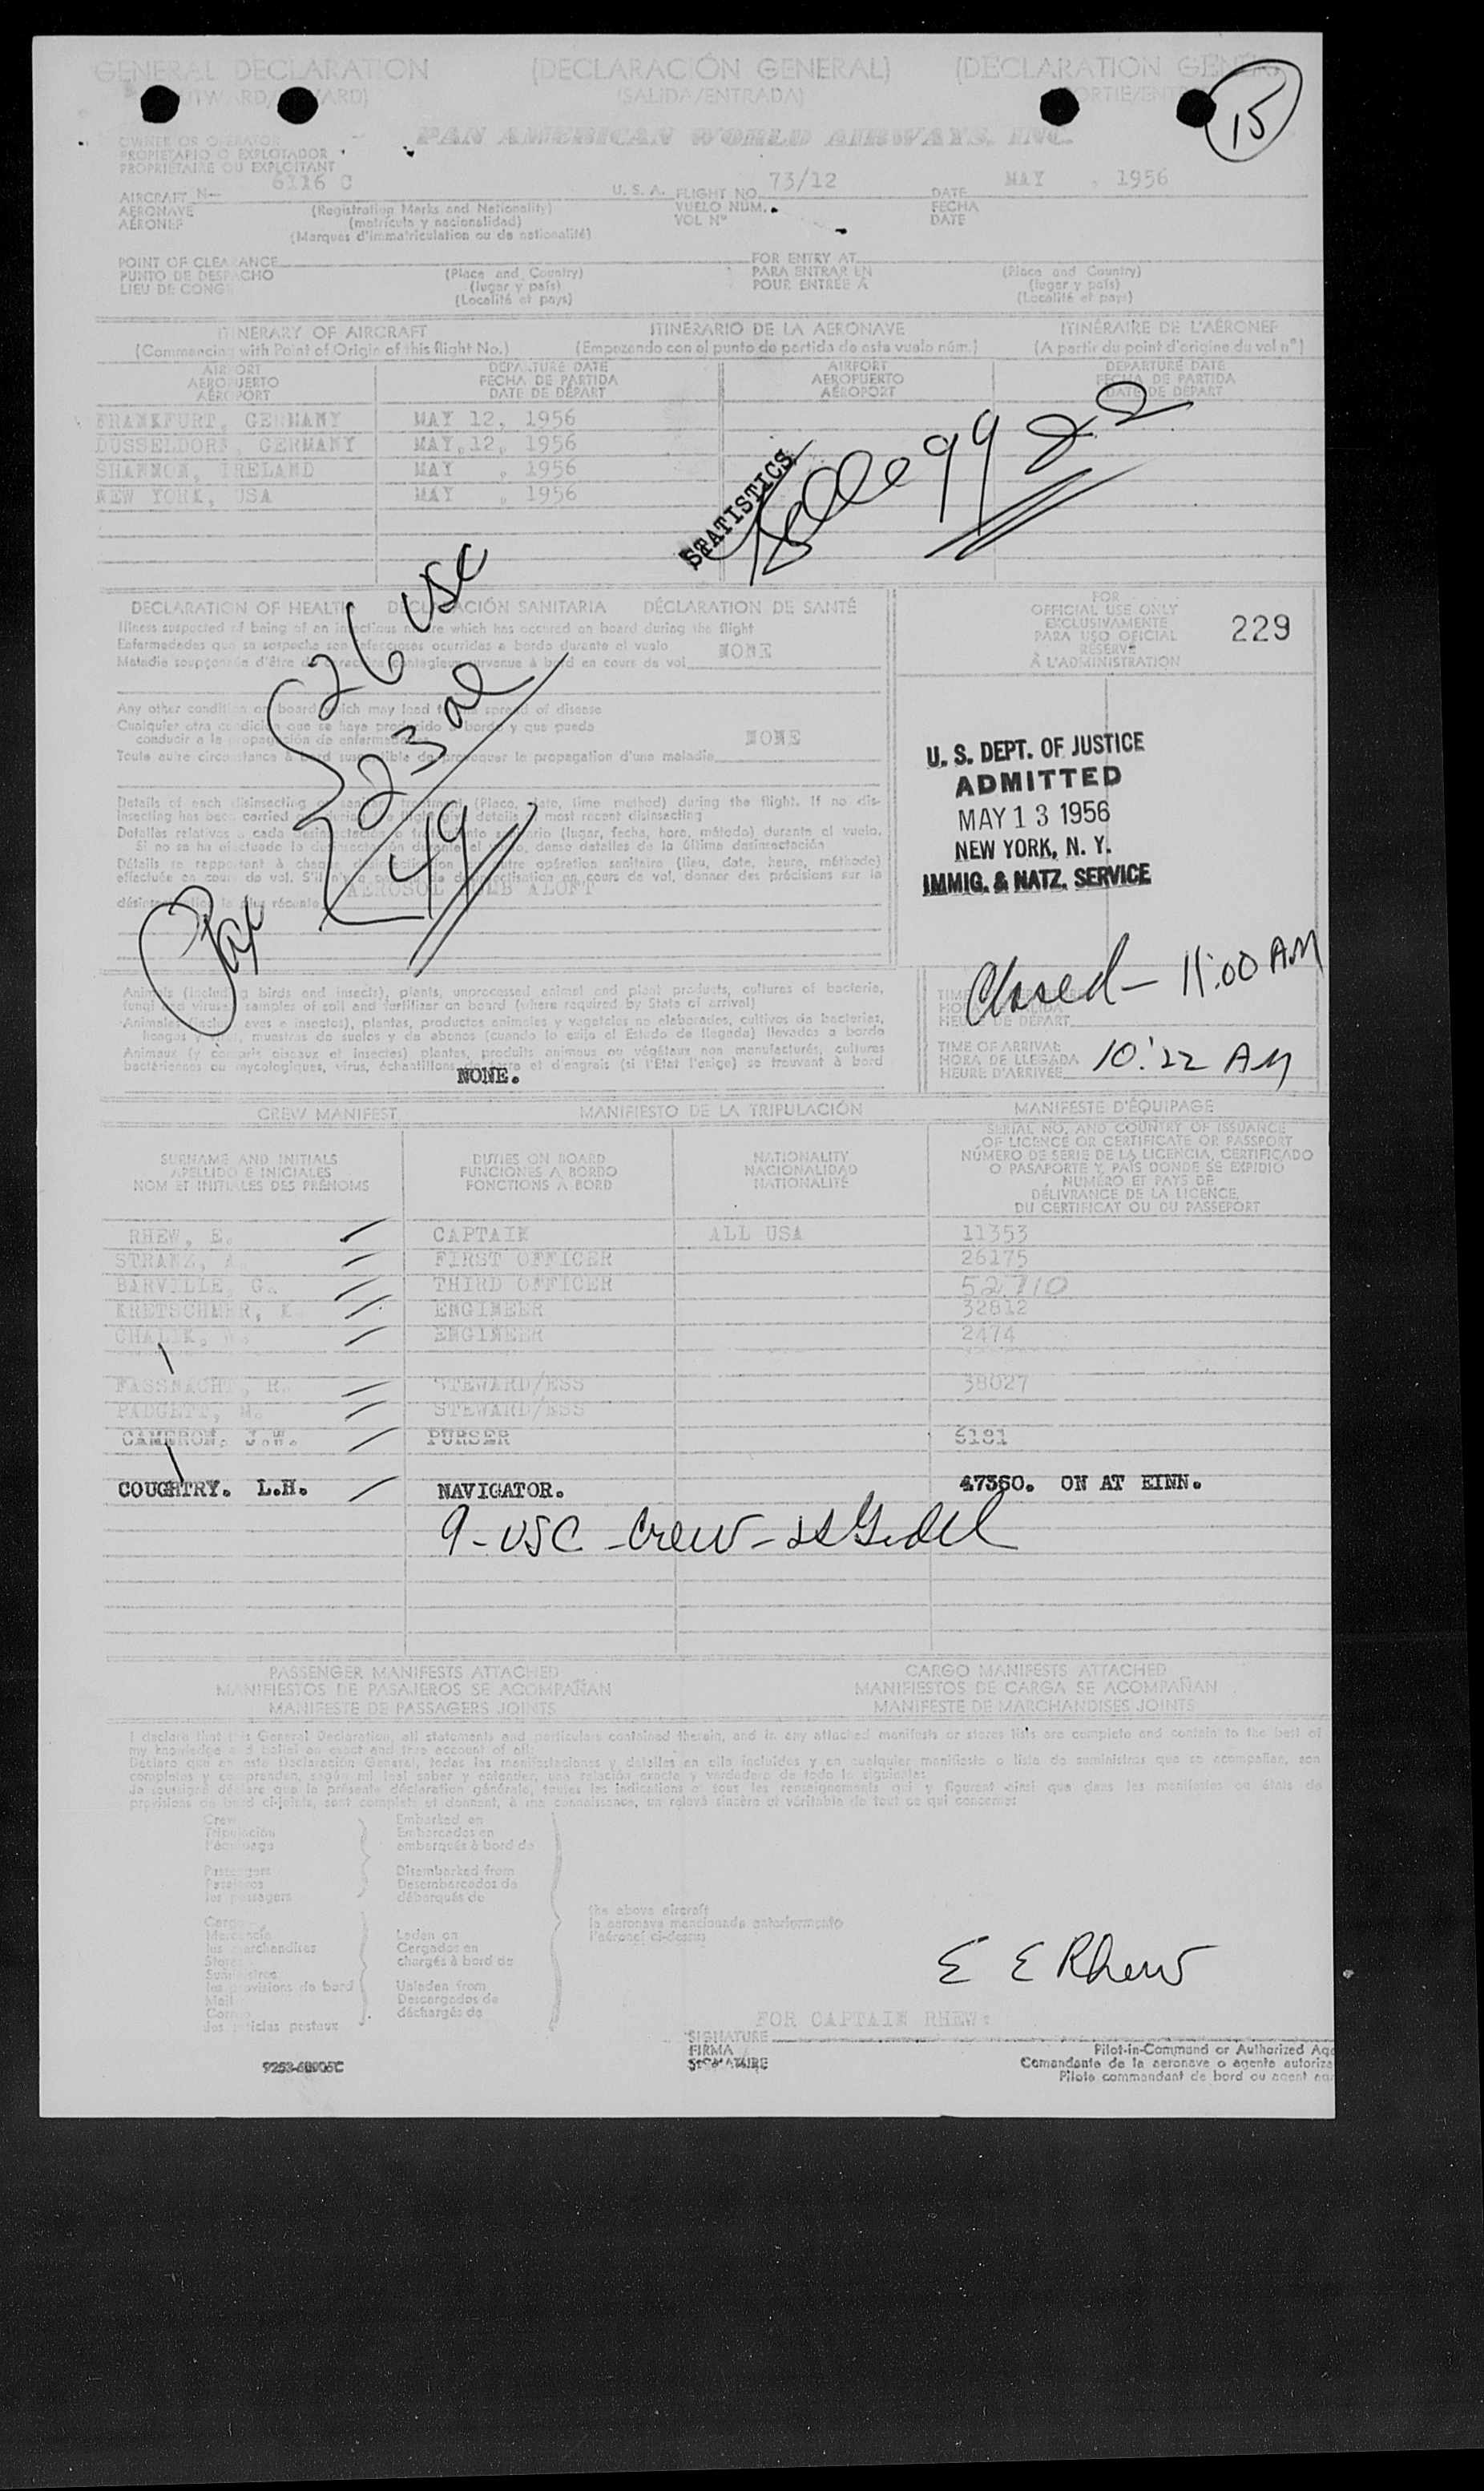 GENERAL DECLARATION (DECLARACIÓN GENERAL) (DECLARATION
(SALIDA/ENTRADA)
15
PAN AMERICAN WORLD AIRWAYS, INC.
OWNER OR OPERATOR
PROPIETARIO O EXPLOTADOR
PROPRIÉTAIRE OU EXPLOITANT
AIRCRAFT N- 6116 C U. S. A. FLIGHT NO. 73/12 DATE MAY , 1956
AERONAVE (Registration Marks and Nationality) VUELO NÚM. FECHA
AÉRONEF (matrícula y nacionalidad) VOL Nº DATE
(Marques d'immatriculation ou de nationalité)
POINT OF CLEARANCE (Place and Country) FOR ENTRY AT (Place and Country)
PUNTO DE DESPACHO (lugar y país) PARA ENTRAR EN (lugar y país)
LIEU DE CONG (Localité et pays) POUR ENTRÉE À (Localité et pays)
ITINERARY OF AIRCRAFT ITINERARIO DE LA AERONAVE ITINÉRAIRE DE L'AÉRONEF
(Commencing with Point of Origin of this flight No.) (Empezando con el punto de partida de este vuelo núm.) (A partir du point d'origine du vol nº)
AIRPORT DEPARTURE DATE AIRPORT DEPARTURE DATE
AEROPUERTO FECHA DE PARTIDA AEROPUERTO FECHA DE PARTIDA
AÉROPORT DATE DE DÉPART AÉROPORT DATE DE DÉPART
FRANKFURT, GERMANY MAY 12, 1956
DUSSELDORF, GERMANY MAY 12, 1956
SHANNON, IRELAND MAY , 1956
NEW YORK, USA MAY , 1956
STATISTICS
DECLARATION OF HEALTH DECLARACIÓN SANITARIA DÉCLARATION DE SANTÉ
Illness suspected of being of an infectious nature which has occured on board during the flight
Enfermedades que se sospecha son infecciosas ocurridas a bordo durante el vuelo NONE
Maladie soupçonnée d'être de caractère contagieux survenue à bord en cours de vol
FOR
OFFICIAL USE ONLY
EXCLUSIVAMENTE
PARA USO OFICIAL
RÉSERVÉ
À L'ADMINISTRATION
229
Any other condition on board which may lead to the spread of disease
Cualquier otra condición que se haya producido a bordo y que pueda
conducir a la propagación de enfermedades NONE
Toute autre circonstance à bord susceptible de provoquer la propagation d'une maladie
Pax 26 USC
23 al
49
U. S. DEPT. OF JUSTICE
ADMITTED
MAY 13 1956
NEW YORK, N. Y.
IMMIG. & NATZ. SERVICE
Details of each disinsecting or sanitary treatment (Place, date, time method) during the flight. If no dis-
insecting has been carried out during the flight give details of most recent disinsecting
Detalles relativos a cada desinsectación o tratamiento sanitario (lugar, fecha, hora, método) durante el vuelo.
Si no se ha efectuado la desinsectación durante el vuelo, dense detalles de la última desinsectación
Détails se rapportant à chaque désinsectisation ou autre opération sanitaire (lieu, date, heure, méthode)
effectuée en cours de vol. S'il n'y a eu de désinsectisation en cours de vol, donner des précisions sur la
désinsectisation la plus récente AEROSOL BOMB ALOFT
Animals (including birds and insects), plants, unprocessed animal and plant products, cultures of bacteria,
fungi and viruses, samples of soil and fertilizer on board (where required by State of arrival)
Animales (inclu aves e insectos), plantas, productos animales y vegetales no elaborados, cultivos de bacterias,
hongos y virus, muestras de suelos y de abonos (cuando lo exija el Estado de llegada) llevados a bordo
Animaux (y compris oiseaux et insectes) plantes, produits animaux ou végétaux non manufacturés, cultures
bactériennes ou mycologiques, virus, échantillons de terre et d'engrais (si l'État l'exige) se trouvant à bord
NONE.
Closed - 11:00 AM
HEURE DE DÉPART
TIME OF ARRIVAL
HORA DE LLEGADA 10:22 AM
HEURE D'ARRIVÉE
CREW MANIFEST MANIFIESTO DE LA TRIPULACIÓN MANIFESTE D'ÉQUIPAGE
SURNAME AND INITIALS DUTIES ON BOARD NATIONALITY SERIAL NO. AND COUNTRY OF ISSUANCE
APELLIDO E INICIALES FUNCIONES A BORDO NACIONALIDAD OF LICENCE OR CERTIFICATE OR PASSPORT
NOM ET INITIALES DES PRÉNOMS FONCTIONS À BORD NATIONALITÉ NÚMERO DE SERIE DE LA LICENCIA, CERTIFICADO
O PASAPORTE Y PAÍS DONDE SE EXPIDIÓ
NUMÉRO ET PAYS DE
DÉLIVRANCE DE LA LICENCE,
DU CERTIFICAT OU DU PASSEPORT
RHEW, E. CAPTAIN ALL USA 11353
STRANZ, A. FIRST OFFICER 26175
BARVILLE, G. THIRD OFFICER 52710
KRETSCHMER, K. ENGINEER 32812
CHALIK, W. ENGINEER 2474
FASSNACHT, R. STEWARD/ESS 38027
PADGETT, M. STEWARD/ESS
CAMERON. J.W. PURSER 5181
COUGHTRY. L.H. NAVIGATOR. 47360. ON AT EINN.
9-USC-Crew-
PASSENGER MANIFESTS ATTACHED CARGO MANIFESTS ATTACHED
MANIFIESTOS DE PASAJEROS SE ACOMPAÑAN MANIFIESTOS DE CARGA SE ACOMPAÑAN
MANIFESTE DE PASSAGERS JOINTS MANIFESTE DE MARCHANDISES JOINTS
I declare that this General Declaration, all statements and particulars contained therein, and in any attached manifests or stores lists are complete and contain to the best of
my knowledge and belief an exact and true account of all:
Declaro que en esta Declaración General, todas las manifestaciones y detalles en ella incluidos y en cualquier manifiesto o lista de suministros que se acompañan, son
completos y comprenden, según mi leal saber y entender, una relación exacta y verdadera de todo lo siguiente:
Je soussigné déclare que la présente déclaration générale, toutes les indications et tous les renseignements qui y figurent ainsi que dans les manifestes ou états de
provisions de bord ci-joints, sont complets et donnent, à ma connaissance, un relevé sincère et véritable de tout ce qui concerne:
Crew Embarked on
Tripulación Embarcados en
l'équipage embarqués à bord de
Passengers Disembarked from
Pasajeros Desembarcados de
les passagers débarqués de
the above aircraft
la aeronave mencionada anteriormente
l'aéronef ci-dessus
Cargo Laden on
Mercancía Cargados en
les marchandises chargés à bord de
Stores
Suministros
les provisions de bord Unladen from
Mail Descargados de
Correo déchargés de
les articles postaux
E E Rhew
FOR CAPTAIN RHEW
SIGNATURE
FIRMA
SIGNATURE
Pilot-in-Command or Authorized Age
Comandante de la aeronave o agente autoriza
Pilote commandant de bord ou agent